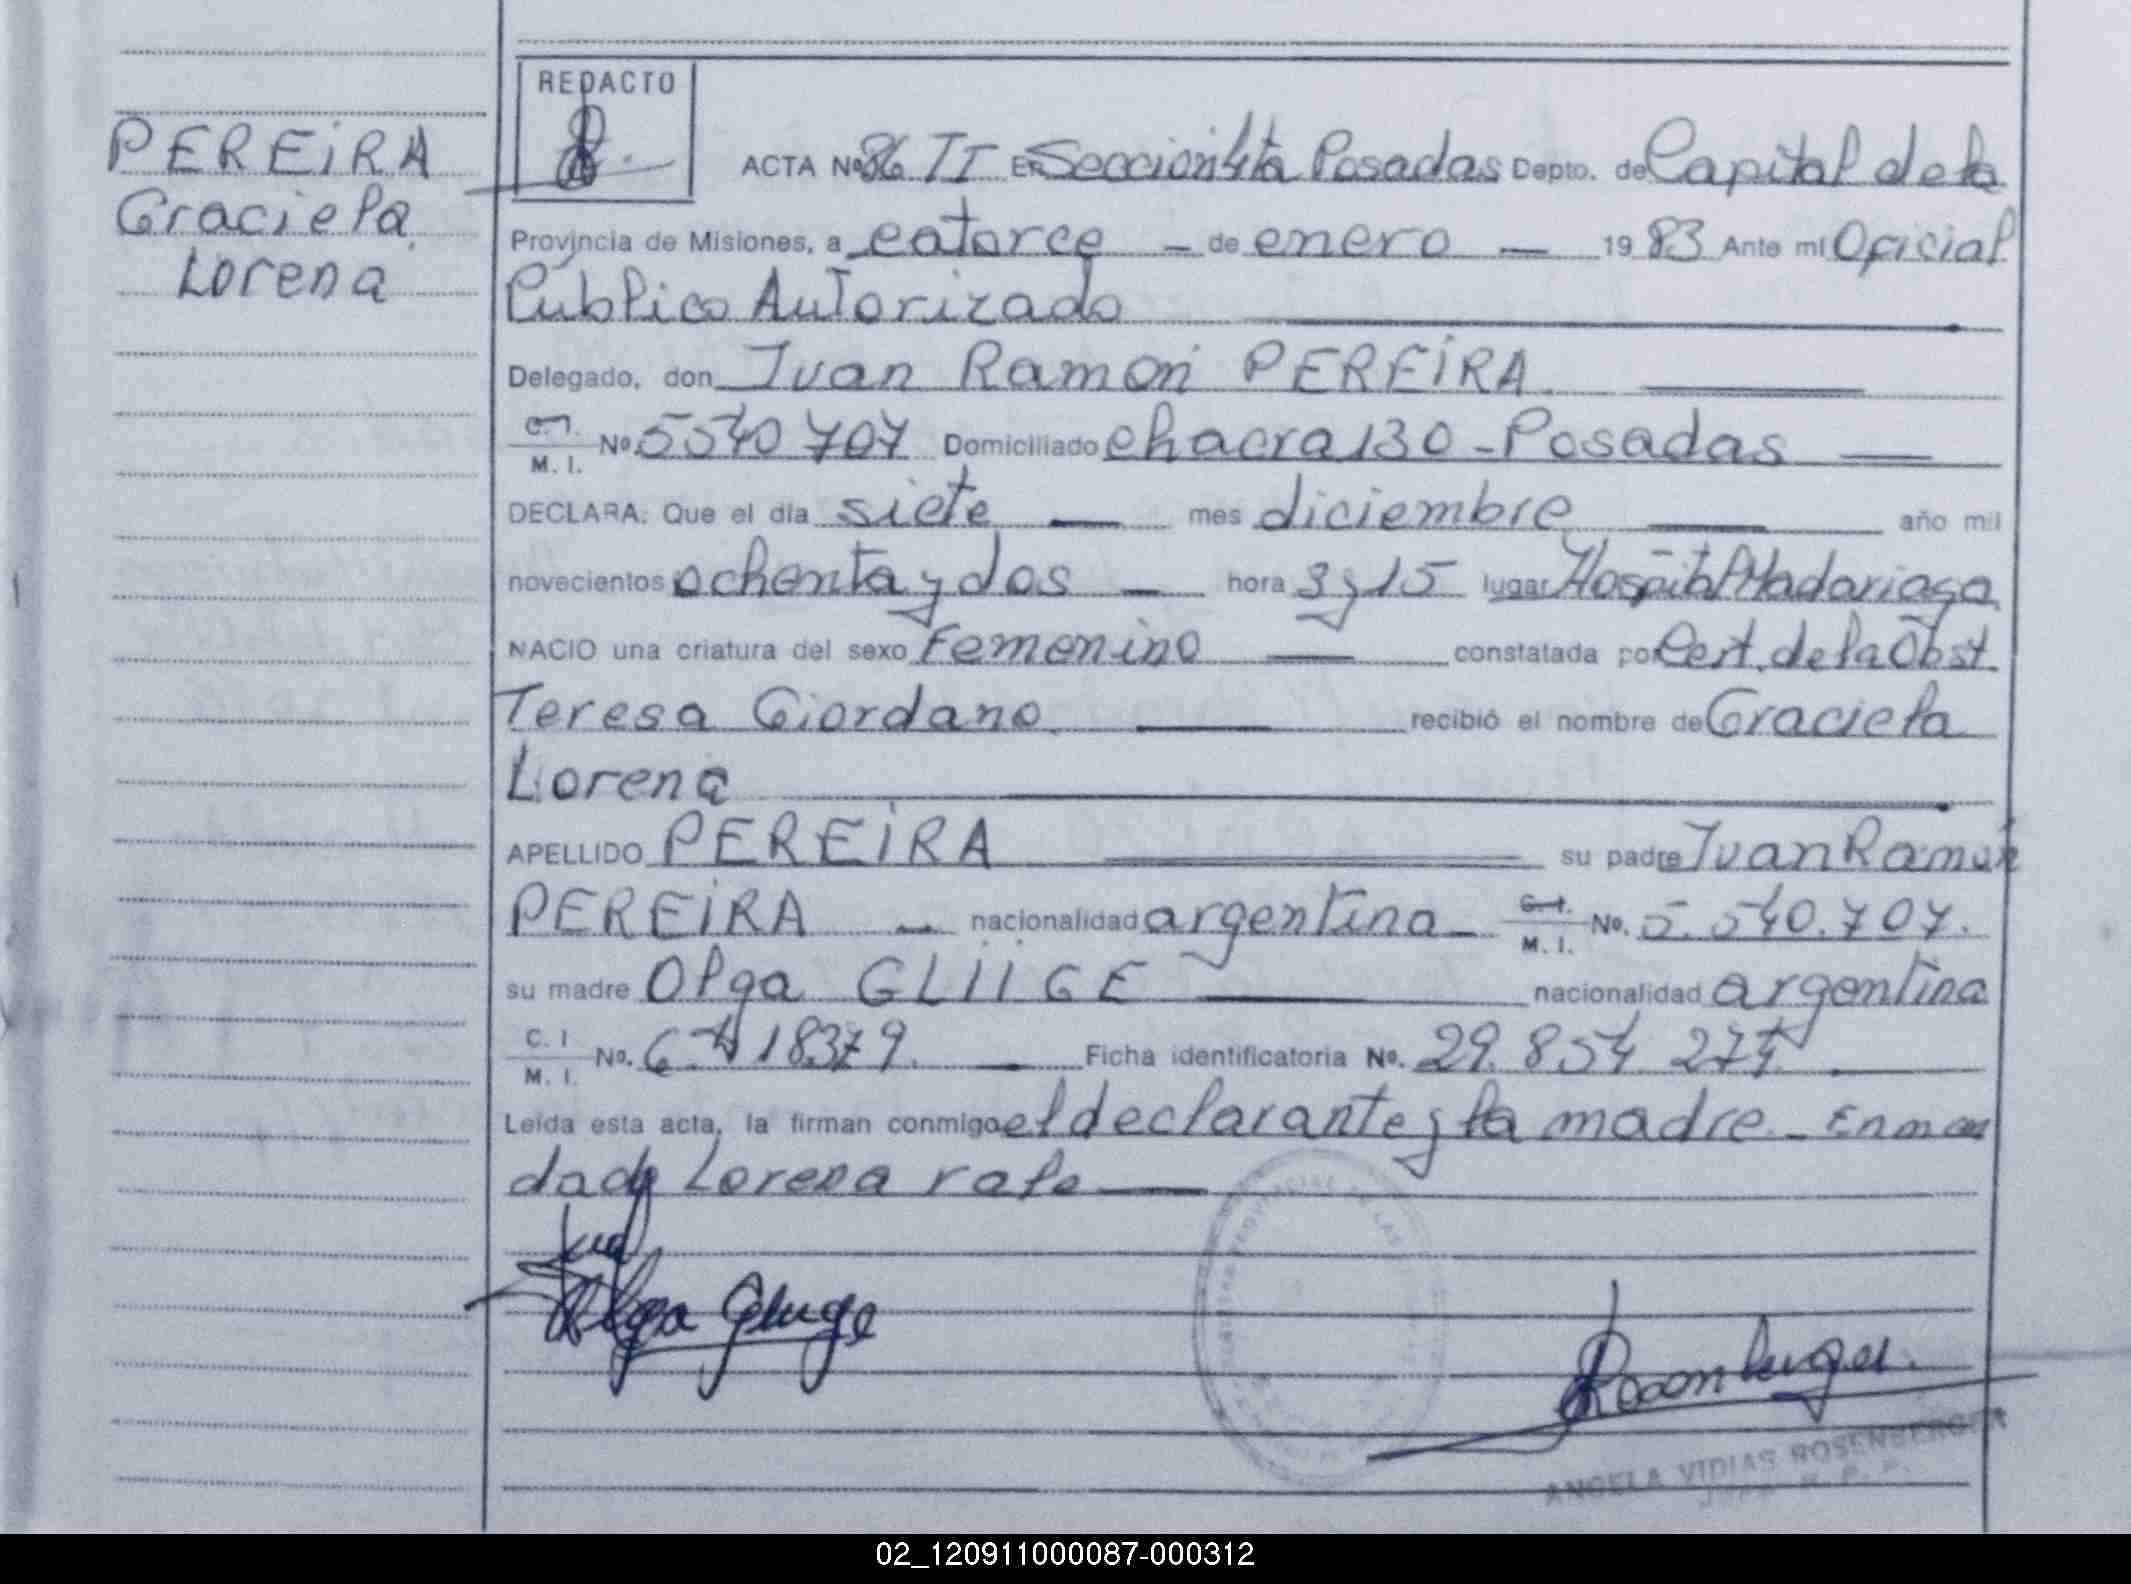 PEREIRA
Graciela
Lorena
REDACTO
ACTA Nº 86 TI EN Sección 4ta Posadas Depto. de Capital de la
Provincia de Misiones, a catorce — de enero — 1983 Ante mí Oficial
Publico Autorizado
Delegado, don Juan Ramon PEREIRA
C.I.
M. I. Nº 5540707 Domiciliado chacra 130 - Posadas
DECLARA: Que el día siete — mes diciembre — año mil
novecientos ochenta y dos — hora 3 y 15 lugar Hospital Madariaga
NACIO una criatura del sexo Femenino — constatada por Cert. de la Obst
Teresa Giordano — recibió el nombre de Graciela
Lorena
APELLIDO PEREIRA su padre Juan Ramón
PEREIRA — nacionalidad argentina - C.I.
M. I. No. 5.540.707.
su madre Olga GLIIGE — nacionalidad argentina
C. I
M. I. No. 6.418379. — Ficha identificatoria No. 29.854 274
Leída esta acta, la firman conmigo el declarante y la madre - Enmen
dado Lorena vale
Olga Gluge
ANGELA VIDIAS ROSENBERGER